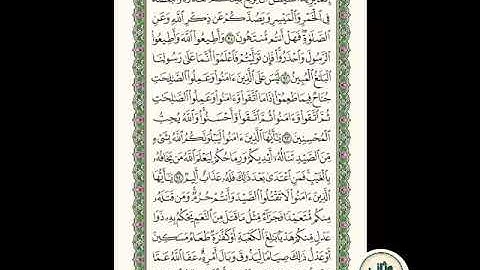 فِي ٱلْخَمْرِ وَٱلْمَيْسِرِ وَيَصُدَّكُمْ عَن ذِكْرِ ٱللَّهِ وَعَنِ
ٱلصَّلَوٰةِ فَهَلْ أَنتُم مُّنتَهُونَ ٩١ وَأَطِيعُوا۟ ٱللَّهَ وَأَطِيعُوا۟
ٱلرَّسُولَ وَٱحْذَرُوا۟ فَإِن تَوَلَّيْتُمْ فَٱعْلَمُوٓا۟ أَنَّمَا عَلَىٰ رَسُولِنَا
ٱلْبَلَٰغُ ٱلْمُبِينُ ٩٢ لَيْسَ عَلَى ٱلَّذِينَ ءَامَنُوا۟ وَعَمِلُوا۟ ٱلصَّٰلِحَٰتِ
جُنَاحٌ فِيمَا طَعِمُوٓا۟ إِذَا مَا ٱتَّقَوا۟ وَّءَامَنُوا۟ وَعَمِلُوا۟ ٱلصَّٰلِحَٰتِ
ثُمَّ ٱتَّقَوا۟ وَّءَامَنُوا۟ ثُمَّ ٱتَّقَوا۟ وَّأَحْسَنُوا۟ وَٱللَّهُ يُحِبُّ
ٱلْمُحْسِنِينَ ٩٣ يَٰٓأَيُّهَا ٱلَّذِينَ ءَامَنُوا۟ لَيَبْلُوَنَّكُمُ ٱللَّهُ بِشَىْءٍ
مِّنَ ٱلصَّيْدِ تَنَالُهُۥٓ أَيْدِيكُمْ وَرِمَاحُكُمْ لِيَعْلَمَ ٱللَّهُ مَن يَخَافُهُۥ
بِٱلْغَيْبِ فَمَنِ ٱعْتَدَىٰ بَعْدَ ذَٰلِكَ فَلَهُۥ عَذَابٌ أَلِيمٌ ٩٤ يَٰٓأَيُّهَا
ٱلَّذِينَ ءَامَنُوا۟ لَا تَقْتُلُوا۟ ٱلصَّيْدَ وَأَنتُمْ حُرُمٌ وَمَن قَتَلَهُۥ
مِنكُم مُّتَعَمِّدًا فَجَزَآءٌ مِّثْلُ مَا قَتَلَ مِنَ ٱلنَّعَمِ يَحْكُمُ بِهِۦ ذَوَا
عَدْلٍ مِّنكُمْ هَدْيًۢا بَٰلِغَ ٱلْكَعْبَةِ أَوْ كَفَّٰرَةٌ طَعَامُ مَسَٰكِينَ
أَوْ عَدْلُ ذَٰلِكَ صِيَامًا لِّيَذُوقَ وَبَالَ أَمْرِهِۦ عَفَا ٱللَّهُ عَمَّا